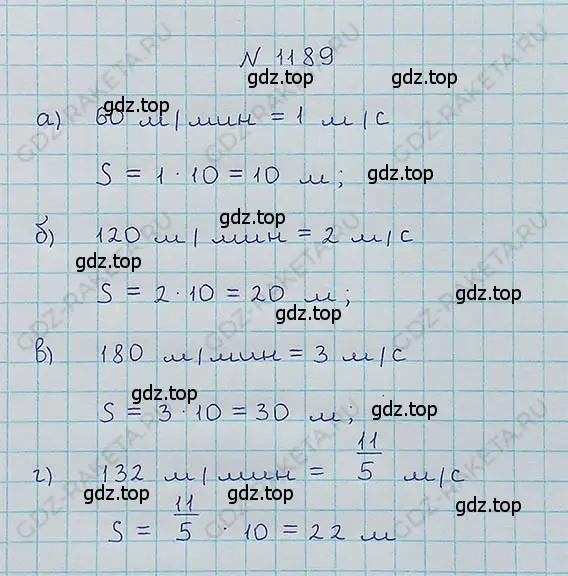 N 1189
gdz.top
а) 60 м/мин = 1 м/с
S = 1 · 10 = 10 м; gdz.top
gdz.top
б) 120 м/мин = 2 м/с
gdz.top
S = 2 · 10 = 20 м; gdz.top
gdz.top
в) 180 м/мин = 3 м/с
gdz.top gdz.top
S = 3 · 10 = 30 м;
г) 132 м/мин = 11/5 м/с
gdz.top gdz.top gdz.top
S = 11/5 · 10 = 22 м
GDZ-RAKETA.RU
GDZ-RAKETA.RU
GDZ-RAKETA.RU
GDZ-RAKETA.RU
GDZ-RAKETA.RU
GDZ-RAKETA.RU
GDZ-RAKETA.RU
GDZ-RAKETA.RU